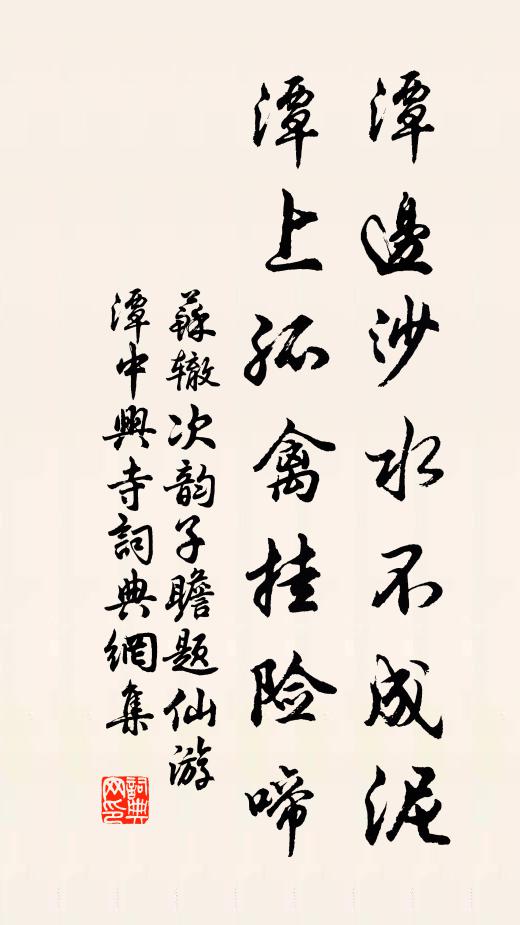 潭邊沙水不成泥
潭上孤禽挂险啼
蘇辙次韵子瞻题仙游
潭中興寺詞典網集
詞典
网印